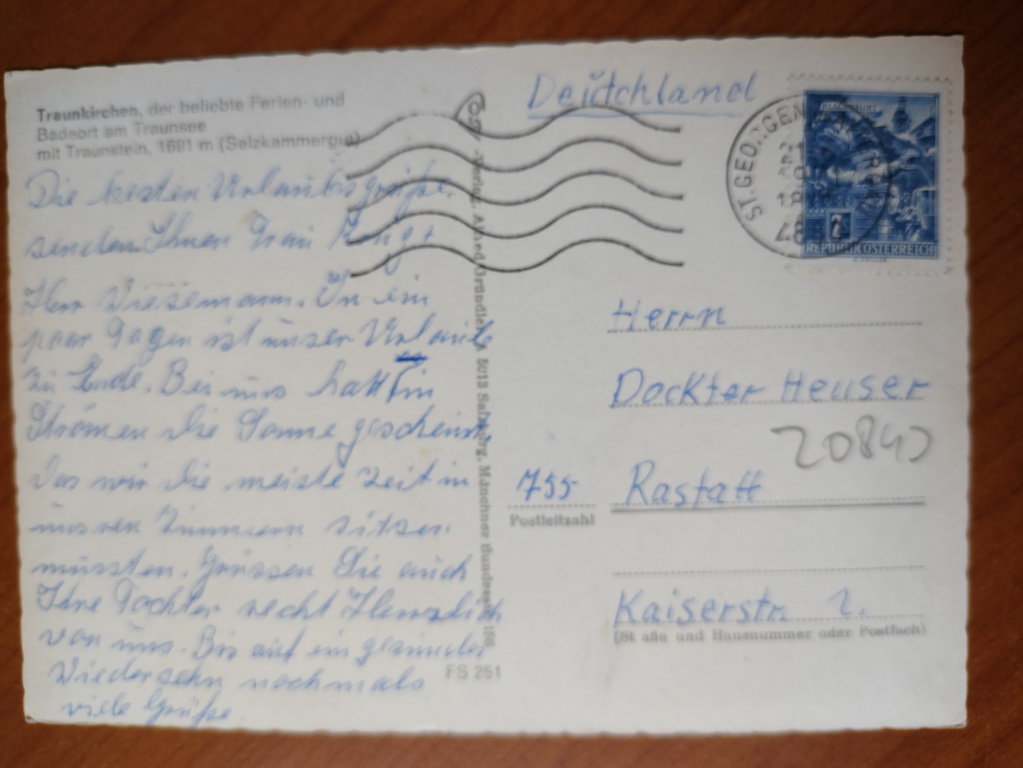 Traunkirchen, der beliebte Ferien- und
Badeort am Traunsee
mit Traunstein, 1691 m (Salzkammergut)
Die besten Urlaubsgrüße
senden Ihnen Frau
Herr Wiesemann. In ein
paar Tagen ist unser Urlaub
zu Ende. Bei uns hatt in
Strömen die Sonne gescheint
Das wir die meiste Zeit in
unsren Zimmern sitzen
mussten. Grüssen Sie auch
Ihre Tochter recht Herzlich
von uns. Bis auf ein gesundes
Wiedersehn nochmals
viele Grüße
FS 251
5013 Salzburg, Münchner Bundesstr.
Deutschland
ST. GEORGEN
REPUBLIK ÖSTERREICH
Herrn
Dockter Heuser
20840
755 Rastatt
Postleitzahl
Kaiserstr. 2.
(Straße und Hausnummer oder Postfach)